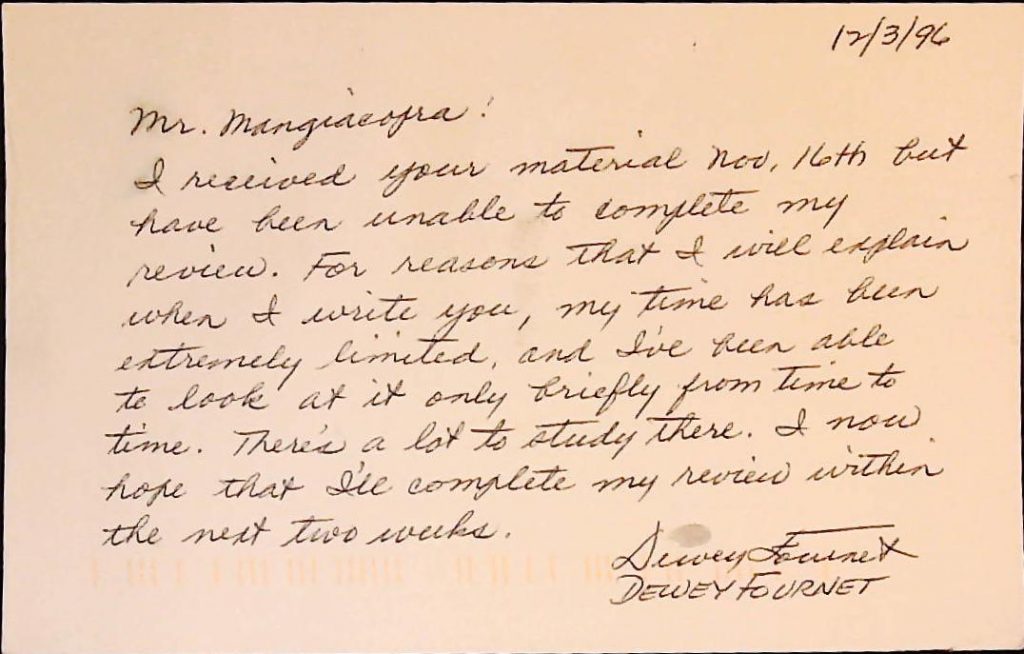 12/3/96
Mr. Mangiacopra:
I received your material Nov. 16th but
have been unable to complete my
review. For reasons that I will explain
when I write you, my time has been
extremely limited, and I've been able
to look at it only briefly from time to
time. There's a lot to study there. I now
hope that I'll complete my review within
the next two weeks.
Dewey Fournet
DEWEY FOURNET